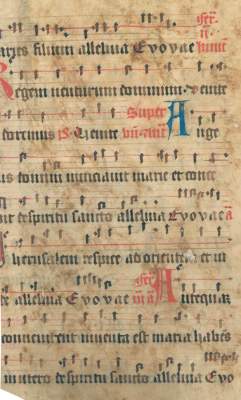 filium alleluia Euouae
Regem uenturum dominum uenite
Super
uenite Ange
us domini nunciauit marie et conce
de spiritu sancto alleluia Euouae a
iherusalem respice ad orientem et ui
de alleluia Euouae Antequam
conuenirent inuenta est maria habens
in utero de spiritu sancto alleluia Euo